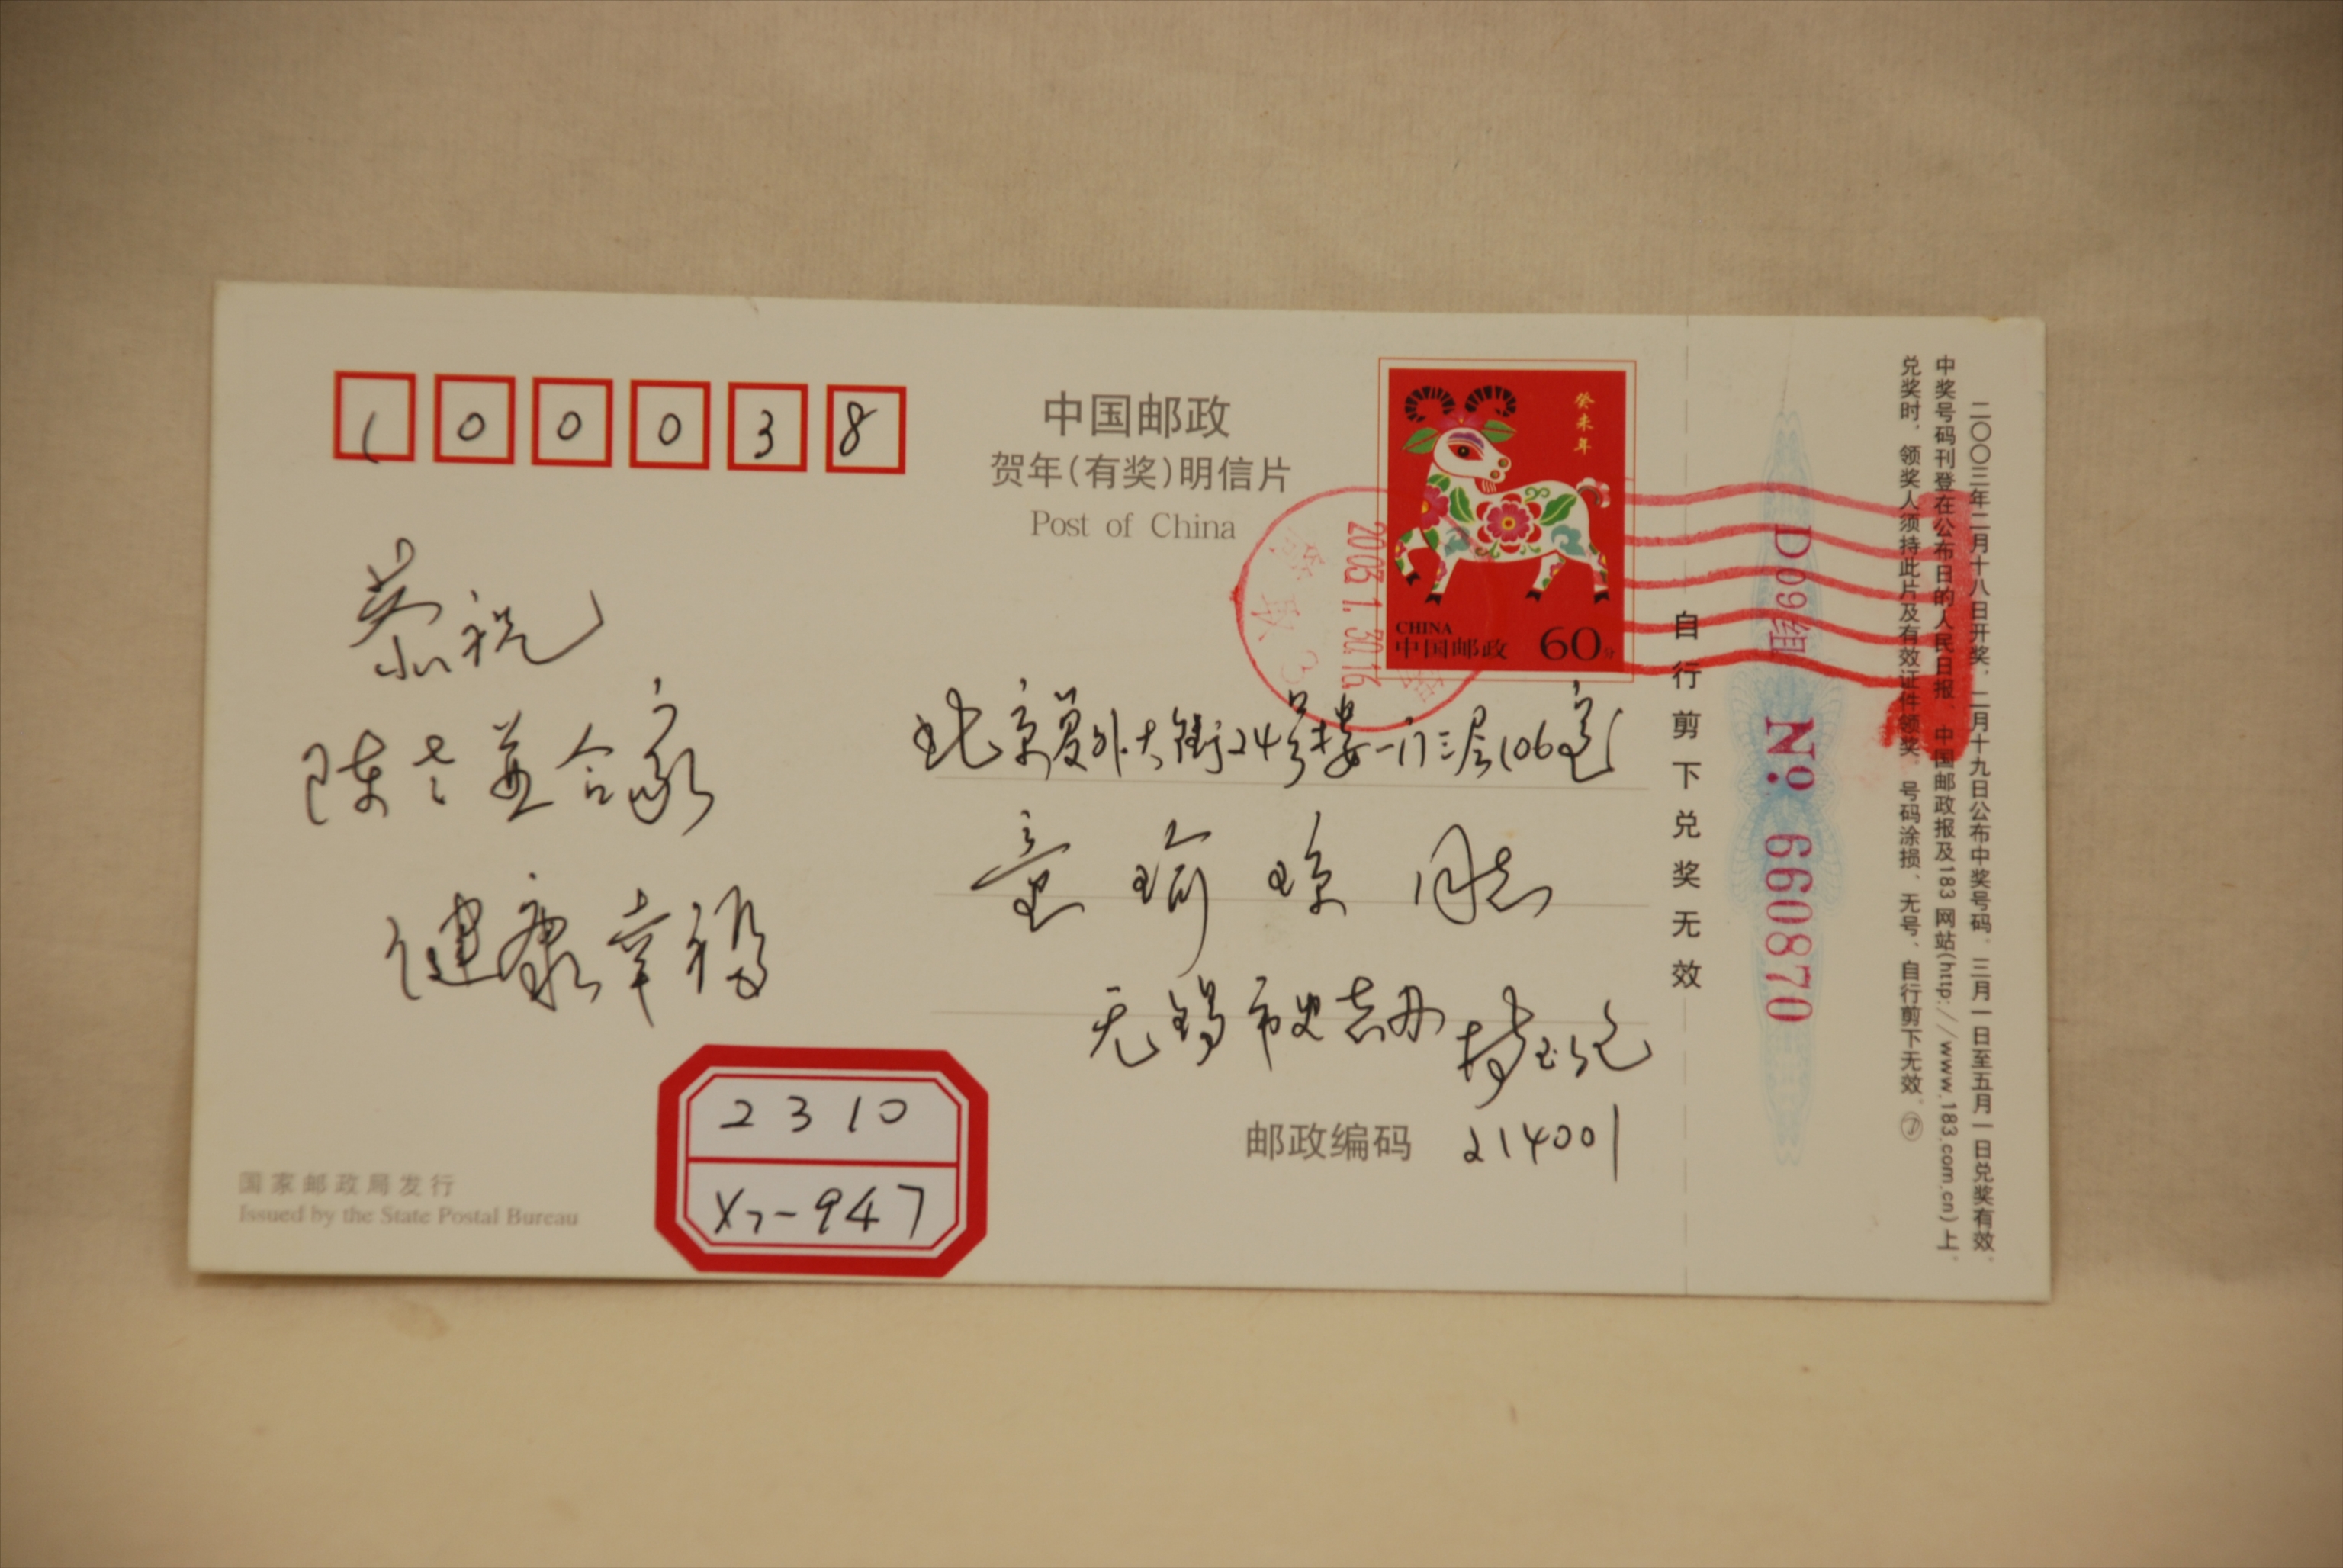 100038
中国邮政
贺年(有奖)明信片
Post of China
癸未年
CHINA
中国邮政 60分
2003.1.30.16
恭祝
陈老并合家
健康幸福
北京复外大街24号楼一门三层106室
童瑜琼同志
无锡市史志办
邮政编码 214001
2310
X7-947
国家邮政局发行
Issued by the State Postal Bureau
自行剪下兑奖无效
D09组 № 660870
二〇〇三年二月十八日开奖，二月十九日公布中奖号码。三月一日至五月一日兑奖有效。
中奖号码刊登在公布日的人民日报、中国邮政报及183网站(http://www.183.com.cn)上。
兑奖时，领奖人须持此片及有效证件领奖。号码涂损、无号、自行剪下无效。